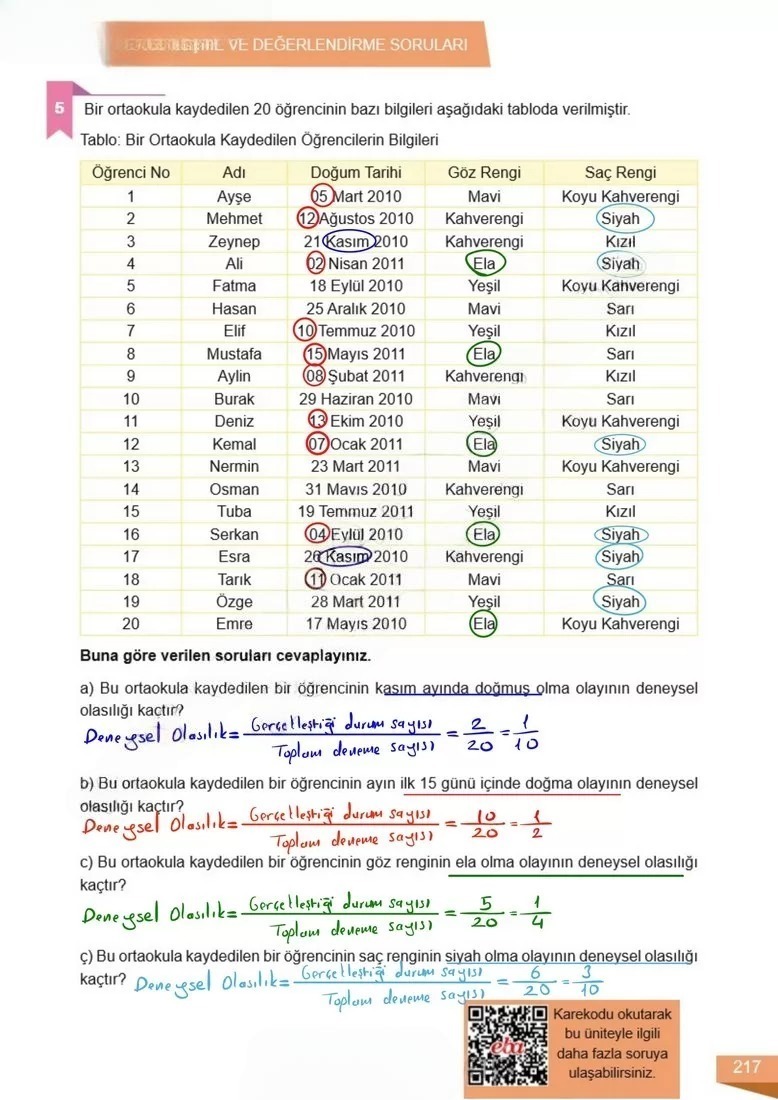 VE DEĞERLENDİRME SORULARI
5 Bir ortaokula kaydedilen 20 öğrencinin bazı bilgileri aşağıdaki tabloda verilmiştir.
Tablo: Bir Ortaokula Kaydedilen Öğrencilerin Bilgileri
Öğrenci No Adı Doğum Tarihi Göz Rengi Saç Rengi
1 Ayşe 05 Mart 2010 Mavi Koyu Kahverengi
2 Mehmet 12 Ağustos 2010 Kahverengi Siyah
3 Zeynep 21 Kasım 2010 Kahverengi Kızıl
4 Ali 02 Nisan 2011 Ela Siyah
5 Fatma 18 Eylül 2010 Yeşil Koyu Kahverengi
6 Hasan 25 Aralık 2010 Mavi Sarı
7 Elif 10 Temmuz 2010 Yeşil Kızıl
8 Mustafa 15 Mayıs 2011 Ela Sarı
9 Aylin 08 Şubat 2011 Kahverengi Kızıl
10 Burak 29 Haziran 2010 Mavi Sarı
11 Deniz 13 Ekim 2010 Yeşil Koyu Kahverengi
12 Kemal 07 Ocak 2011 Ela Siyah
13 Nermin 23 Mart 2011 Mavi Koyu Kahverengi
14 Osman 31 Mayıs 2010 Kahverengi Sarı
15 Tuba 19 Temmuz 2011 Yeşil Kızıl
16 Serkan 04 Eylül 2010 Ela Siyah
17 Esra 26 Kasım 2010 Kahverengi Siyah
18 Tarık 11 Ocak 2011 Mavi Sarı
19 Özge 28 Mart 2011 Yeşil Siyah
20 Emre 17 Mayıs 2010 Ela Koyu Kahverengi
Buna göre verilen soruları cevaplayınız.
a) Bu ortaokula kaydedilen bir öğrencinin kasım ayında doğmuş olma olayının deneysel
olasılığı kaçtır?
Deneysel Olasılık = Gerçekleştiği durum sayısı / Toplam deneme sayısı = 2/20 = 1/10
b) Bu ortaokula kaydedilen bir öğrencinin ayın ilk 15 günü içinde doğma olayının deneysel
olasılığı kaçtır?
Deneysel Olasılık = Gerçekleştiği durum sayısı / Toplam deneme sayısı = 10/20 = 1/2
c) Bu ortaokula kaydedilen bir öğrencinin göz renginin ela olma olayının deneysel olasılığı
kaçtır?
Deneysel Olasılık = Gerçekleştiği durum sayısı / Toplam deneme sayısı = 5/20 = 1/4
ç) Bu ortaokula kaydedilen bir öğrencinin saç renginin siyah olma olayının deneysel olasılığı
kaçtır? Deneysel Olasılık = Gerçekleştiği durum sayısı / Toplam deneme sayısı = 6/20 = 3/10
eba
Karekodu okutarak
bu üniteyle ilgili
daha fazla soruya
ulaşabilirsiniz.
217